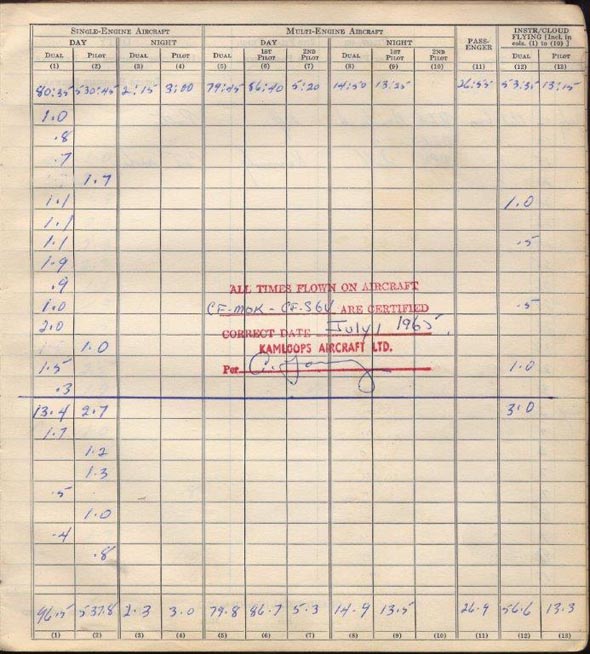 SINGLE-ENGINE AIRCRAFT MULTI-ENGINE AIRCRAFT PASS-ENGER INSTR/CLOUD FLYING [Incl. in cols. (1) to (10) ]
DAY NIGHT DAY NIGHT
DUAL PILOT DUAL PILOT DUAL 1ST PILOT 2ND PILOT DUAL 1ST PILOT 2ND PILOT DUAL PILOT
(1) (2) (3) (4) (5) (6) (7) (8) (9) (10) (11) (12) (13)
80:35 530:45 2:15 3:00 79:45 86:40 5:20 14:50 13:25 26:55 53:35 13:15
1.0
.8
.7
1.7
1.1 1.0
1.1
1.1 .5
1.9
.9
1.0 .5
2.0
1.0
1.5 1.0
.3
ALL TIMES FLOWN ON AIRCRAFT
CF-MOK - CF-SGV ARE CERTIFIED
CORRECT DATE July 1 1965.
KAMLOOPS AIRCRAFT LTD.
Per
13.4 2.7 3.0
1.7
1.2
1.3
.5
1.0
.4
.8
96.5 537.8 2.3 3.0 79.8 86.7 5.3 14.9 13.5 26.9 56.6 13.3
(1) (2) (3) (4) (5) (6) (7) (8) (9) (10) (11) (12) (13)